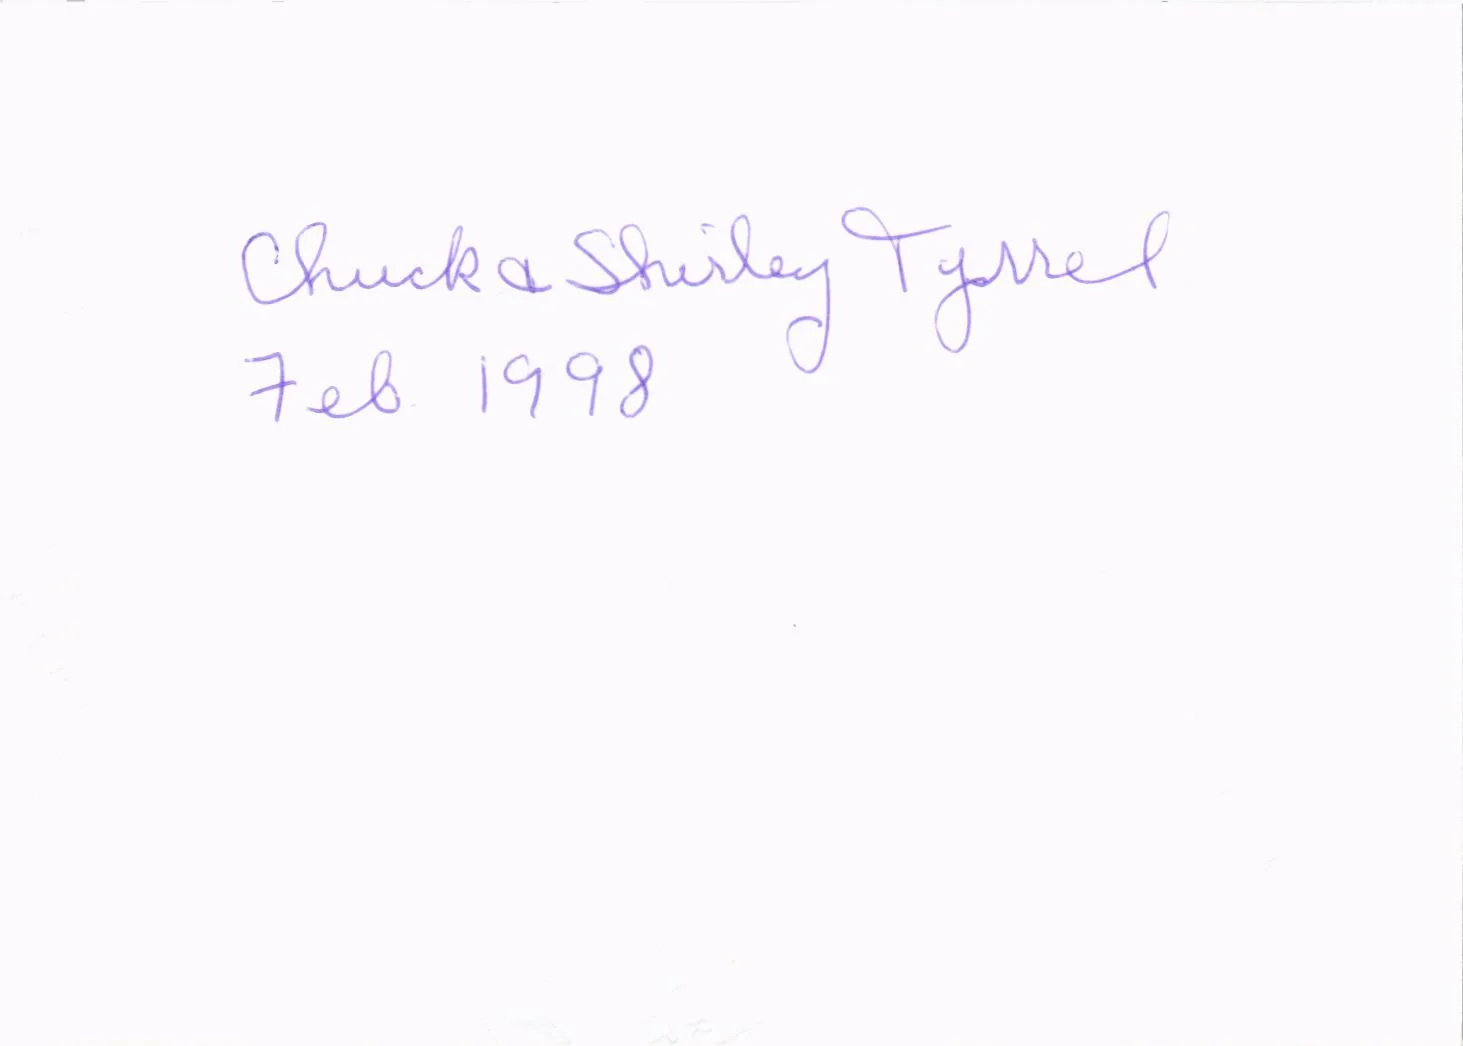 Chuck & Shirley Tyrrel
Feb 1998